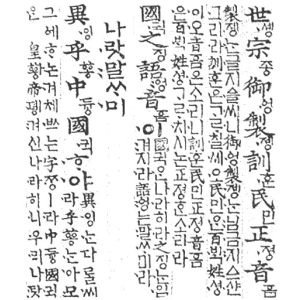 世솅宗조ᇰ御ᅌᅥᆼ製졩訓훈民민正져ᇰ音ᅙᅳᆷ
製졩는글지ᅀᅳᆯ씨니御ᅌᅥᆼ製졩는님금지ᅀᅳ샨
그리라訓훈은ᄀᆞᄅᆞ칠씨오民민ᄋᆞᆫ百ᄇᆡᆨ姓셔ᇰ
이오音ᅙᅳᆷ은소리니訓훈民민正져ᇰ音ᅙᅳᆷ
은百ᄇᆡᆨ姓셔ᇰᄀᆞᄅᆞ치시논正져ᇰᄒᆞᆫ소리라
國귁之징語ᅌᅥᆼ音ᅙᅳᆷ이
國귁ᄋᆞᆫ나라히라之징ᄂᆞᆫ입
겨지라語ᅌᅥᆼ는말ᄊᆞ미라
나랏말ᄊᆞ미
異잉乎ᅘᅩᆼ中듀ᇰ國귁ᄒᆞ야
異잉ᄂᆞᆫ다ᄅᆞᆯ씨
라乎ᅘᅩᆼᄂᆞᆫ아모
그ᅌᅦᄒᆞ논겨체ᄡᅳ는字ᄍᆞᆼㅣ라中듀ᇰ國귁ᄋᆞᆫ
皇ᅘᅪᇰ帝뎽겨신나라히니우리나랏